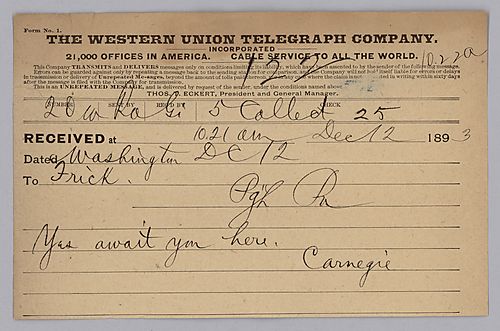 Form No. 1.
THE WESTERN UNION TELEGRAPH COMPANY.
INCORPORATED
21,000 OFFICES IN AMERICA. CABLE SERVICE TO ALL THE WORLD.
10.22a
This Company TRANSMITS and DELIVERS messages only on conditions limiting its liability, which have been assented to by the sender of the following message.
Errors can be guarded against only by repeating a message back to the sending station for comparison, and the Company will not hold itself liable for errors or delays
in transmission or delivery of Unrepeated Messages, beyond the amount of tolls paid thereon, nor in any case where the claim is not presented in writing within sixty days
after the message is filed with the Company for transmission.
This is an UNREPEATED MESSAGE, and is delivered by request of the sender, under the conditions named above.
THOS. T. ECKERT, President and General Manager.
NUMBER SENT BY REC'D BY CHECK
20 5 Collect 25
RECEIVED at 10.21 am Dec 12 1893
Dated Washington DC 12
To Frick.
Pgh Pa
Yes await you here.
Carnegie